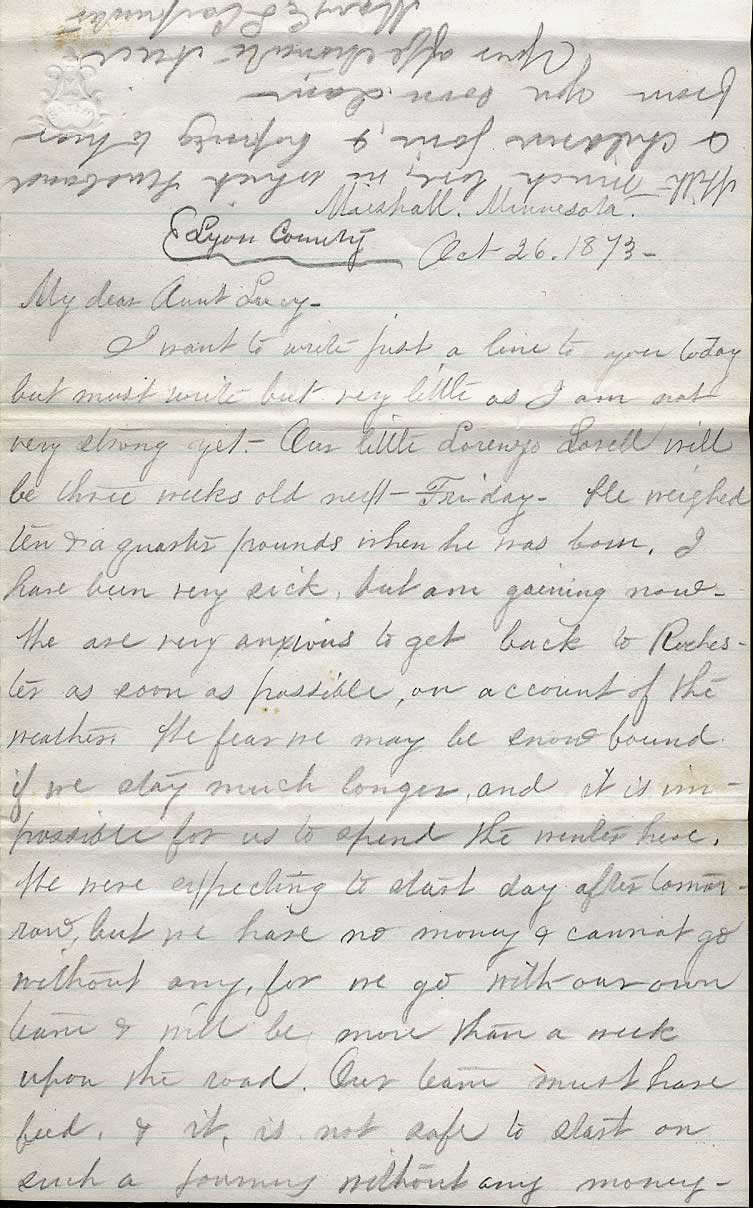 Marshall. Minnesota.
Lyon County
Oct 26. 1873-
My dear Aunt Lucy-
I want to write just a line to you today
but must write but very little as I am not
very strong yet- Our little Lorenzo Lovell will
be three weeks old next- Friday- He weighed
ten & a quarter pounds when he was born. I
have been very sick, but am gaining now-
We are very anxious to get back to Roches-
ter as soon as possible, on account of the
weather. We fear we may be snow bound
if we stay much longer, and it is im-
possible for us to spend the winter here.
We were expecting to start day after tomor-
row, but we have no money & cannot go
without any, for we go with our own
team & will be more than a week
upon the road. Our team must have
feed. & it, is not safe to start on
such a journey without any money-
With much love, in which husband
& children join, & hoping to hear
from you soon again
Your affectionate niece
Mary E L Carpenter